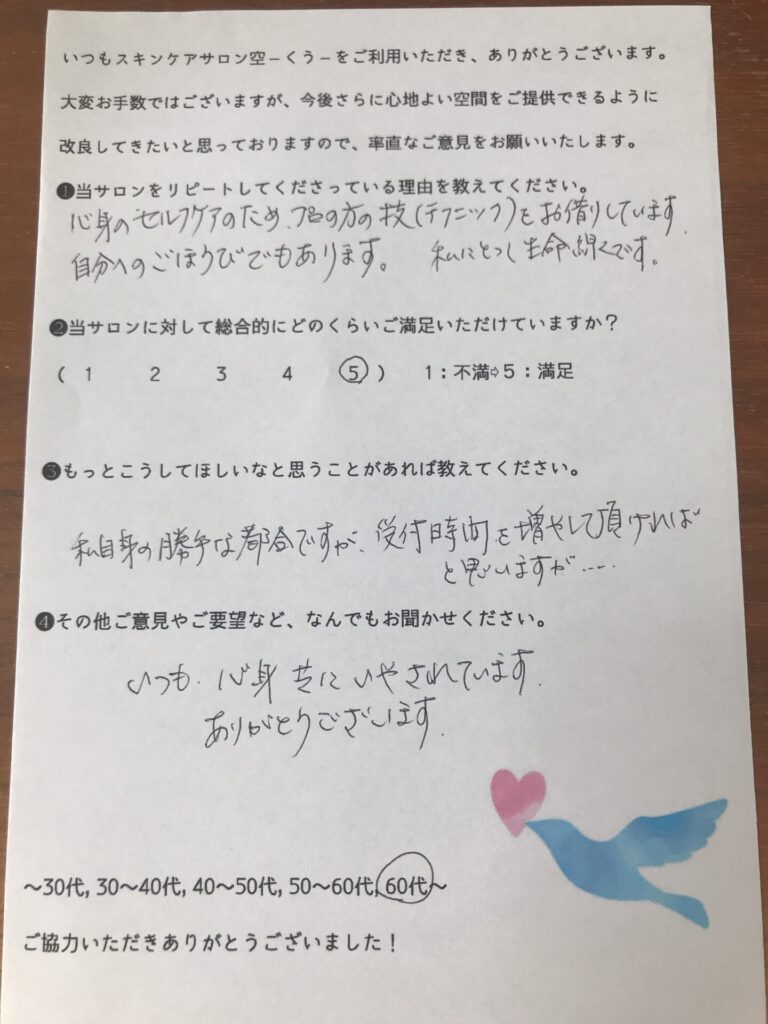 いつもスキンケアサロン空－くう－をご利用いただき、ありがとうございます。
大変お手数ではございますが、今後さらに心地よい空間をご提供できるように
改良してきたいと思っておりますので、率直なご意見をお願いいたします。
❶当サロンをリピートしてくださっている理由を教えてください。
心身のセルフケアのため、プロの方の技(テクニック)をお借りしています。
自分へのごほうびでもあります。 私にとって生命線です。
❷当サロンに対して総合的にどのくらいご満足いただけていますか？
( 1 2 3 4 5 ) 1：不満⇨5：満足
❸もっとこうしてほしいなと思うことがあれば教えてください。
私自身の勝手な都合ですが、受付時間を増やして頂ければ
と思いますが……
❹その他ご意見やご要望など、なんでもお聞かせください。
いつも、心身共にいやされています。
ありがとうございます。
～30代, 30～40代, 40～50代, 50～60代, 60代～
ご協力いただきありがとうございました！